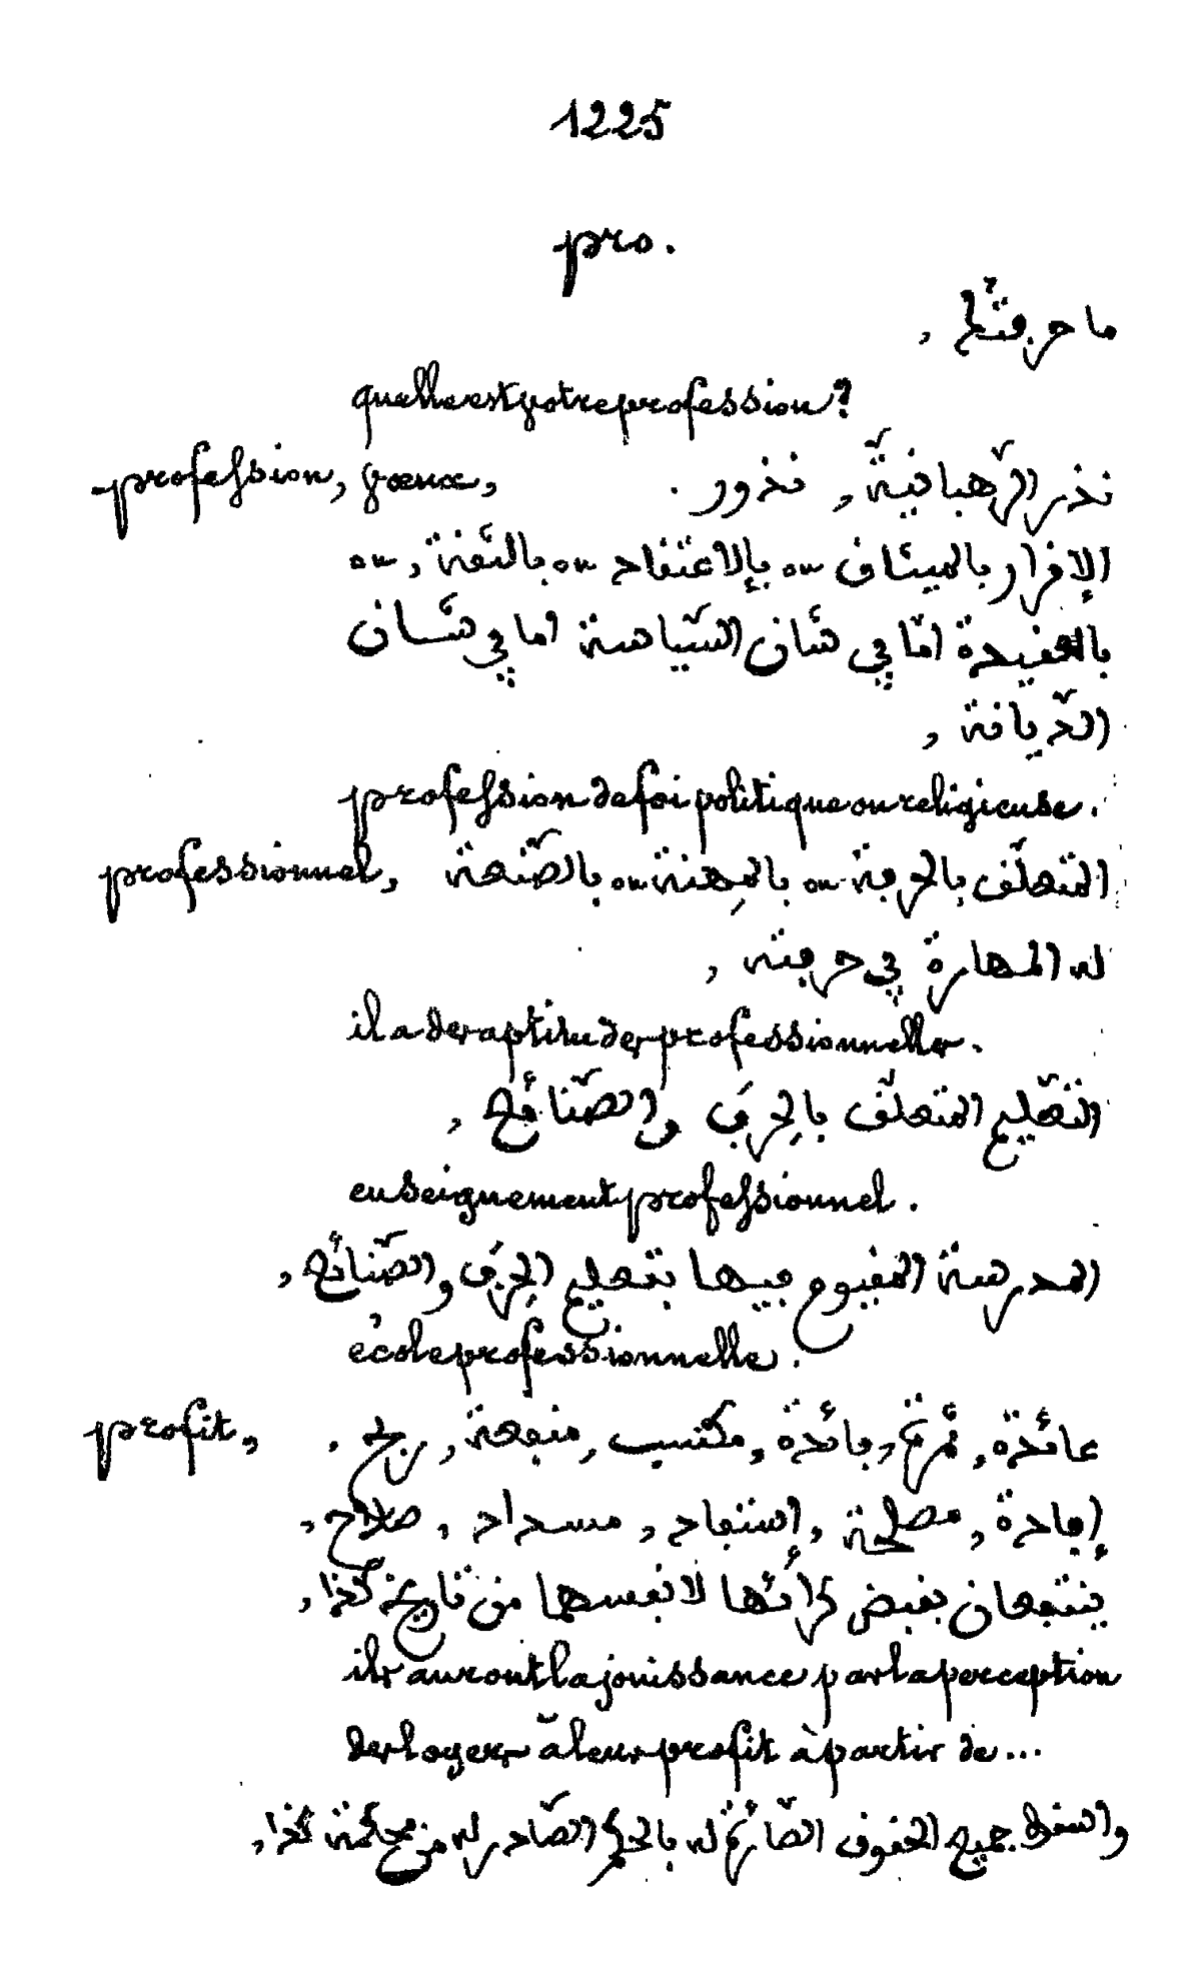 1225
pro.
ما حرفتكم ,
quelle est votre profession?
profession, vœux, نذر الرّهبانيّة , نذور .
الإقرار بالميثاق ou بالإعتقاد ou بالثّقة , ou
بالعقيدة امّا في شأن السّياسة اما في شأن
الدّيانة ,
profession de foi politique ou religieuse.
professionnel, المتعلّق بالحرفة ou بالمِهنة ou بالصّنعة
له المهارة في حرفته ,
il a des aptitudes professionnelles.
التّعليم المتعلّق بالِحرَف والصّنائع ,
enseignement professionnel.
المدرسة المقيوم فيها بتعليم الِحرَف والصّنائع ,
école professionnelle.
profit, عائدة , ثمرة , فائدة , مكتسب , منفعة , ربح .
إفادة , مصلحة , إستفاد , سداد , صلاح ,
ينتفعان بقبض كرائها لانفسهما من تاريخ كذا ,
ils auront la jouissance par la perception
des loyers à leur profit à partir de...
واسقط جميع الحقوق الصّائرة له بالحكم الصّادر له من محكمة كذا ,